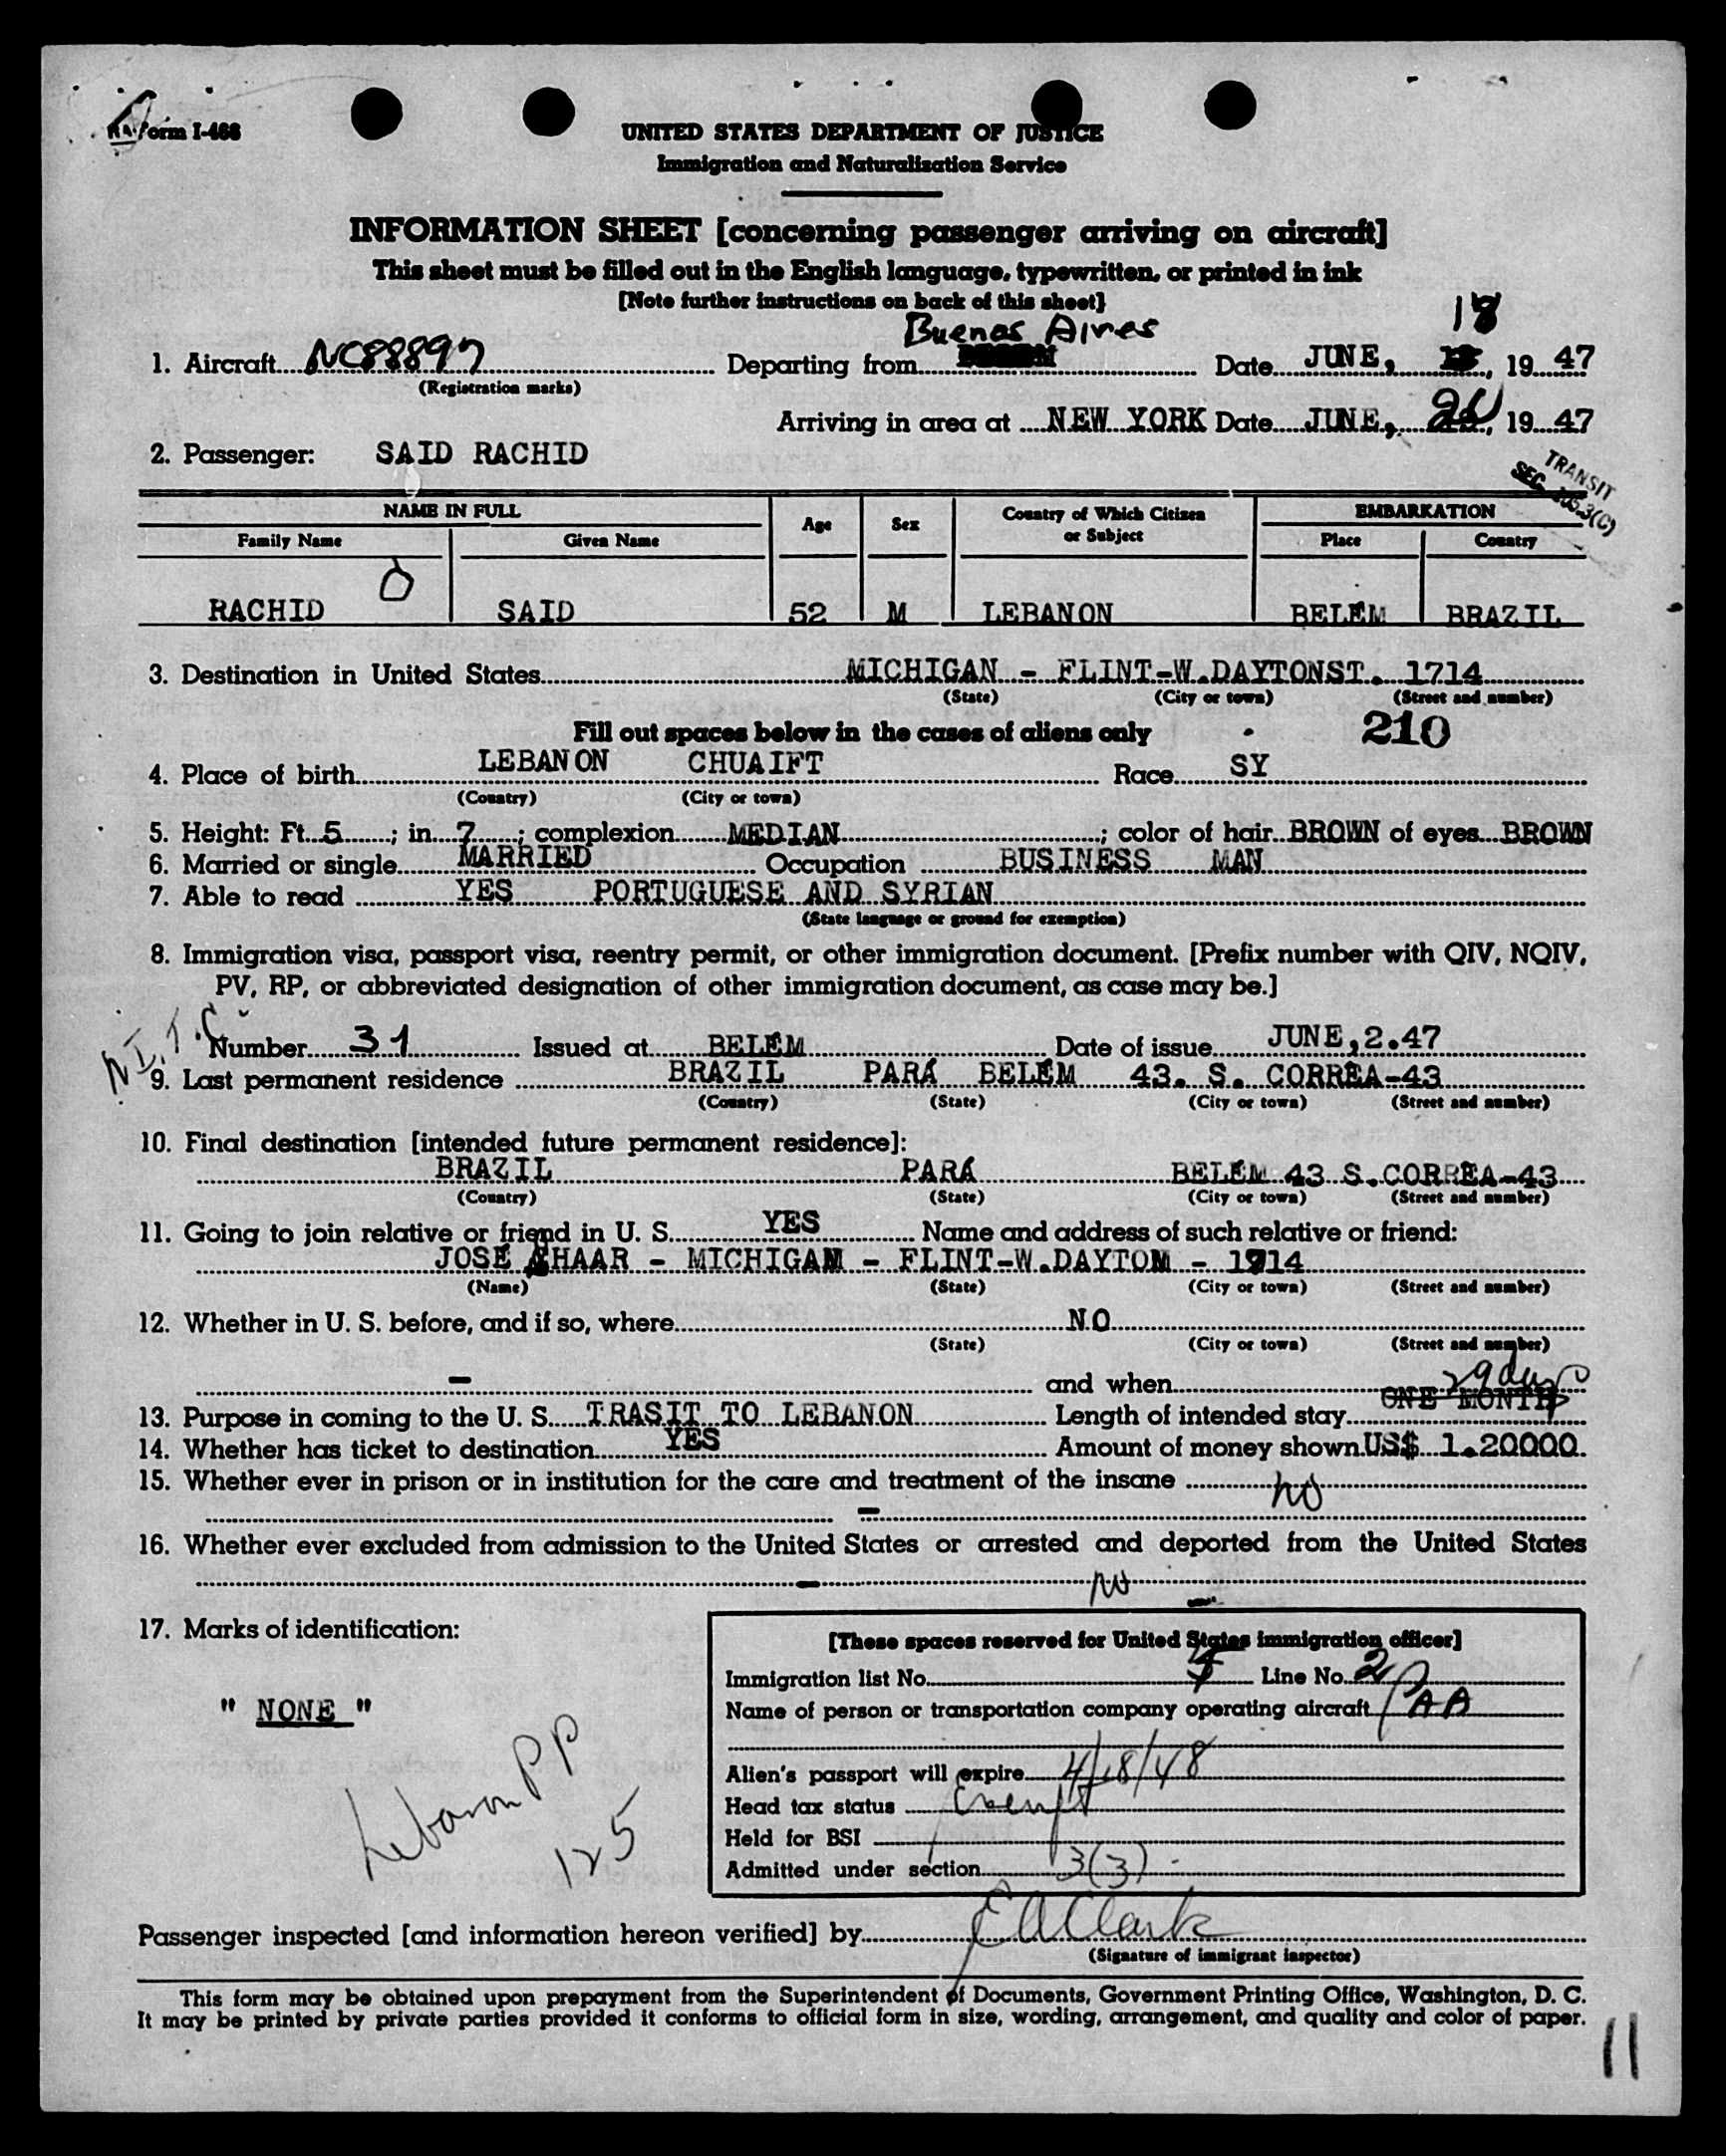 Form I-466
UNITED STATES DEPARTMENT OF JUSTICE
Immigration and Naturalization Service
INFORMATION SHEET [concerning passenger arriving on aircraft]
This sheet must be filled out in the English language, typewritten, or printed in ink
[Note further instructions on back of this sheet]
Buenos Aires 18
1. Aircraft NC88897 Departing from Date JUNE, 19 47
(Registration marks)
Arriving in area at NEW YORK Date JUNE, 19 47
2. Passenger: SAID RACHID
TRANSIT
SEC. 3(C)
NAME IN FULL Age Sex Country of Which Citizen or Subject EMBARKATION
Family Name Given Name Place Country
RACHID SAID 52 M LEBANON BELÉM BRAZIL
3. Destination in United States MICHIGAN - FLINT-W.DAYTONST. 1714
(State) (City or town) (Street and number)
Fill out spaces below in the cases of aliens only 210
4. Place of birth LEBANON CHUAIFT Race SY
(Country) (City or town)
5. Height: Ft. 5 ; in. 7 ; complexion MEDIAN ; color of hair BROWN of eyes BROWN
6. Married or single MARRIED Occupation BUSINESS MAN
7. Able to read YES PORTUGUESE AND SYRIAN
(State language or ground for exemption)
8. Immigration visa, passport visa, reentry permit, or other immigration document. [Prefix number with QIV, NQIV,
PV, RP, or abbreviated designation of other immigration document, as case may be.]
N.I.T.C.
Number 31 Issued at BELÉM Date of issue JUNE,2.47
9. Last permanent residence BRAZIL PARÁ BELÉM 43. S. CORRÊA-43
(Country) (State) (City or town) (Street and number)
10. Final destination [intended future permanent residence]:
BRAZIL PARÁ BELÉM 43 S.CORRÊA-43
(Country) (State) (City or town) (Street and number)
11. Going to join relative or friend in U. S. YES Name and address of such relative or friend:
JOSÉ SHAAR - MICHIGAM - FLINT-W.DAYTOM - 1714
(Name) (State) (City or town) (Street and number)
12. Whether in U. S. before, and if so, where NO
(State) (City or town) (Street and number)
- and when
29 days
13. Purpose in coming to the U. S. TRASIT TO LEBANON Length of intended stay ONE MONTH
14. Whether has ticket to destination YES Amount of money shown US$ 1.20000
15. Whether ever in prison or in institution for the care and treatment of the insane no
-
16. Whether ever excluded from admission to the United States or arrested and deported from the United States
- no
17. Marks of identification:
" NONE "
Lebanon PP
125
[These spaces reserved for United States immigration officer]
Immigration list No. Line No. 2
Name of person or transportation company operating aircraft PAA
Alien's passport will expire 4/18/48
Head tax status Exempt
Held for BSI
Admitted under section 3(3) -
Passenger inspected [and information hereon verified] by E A Clark
(Signature of immigrant inspector)
This form may be obtained upon prepayment from the Superintendent of Documents, Government Printing Office, Washington, D. C.
It may be printed by private parties provided it conforms to official form in size, wording, arrangement, and quality and color of paper.
11